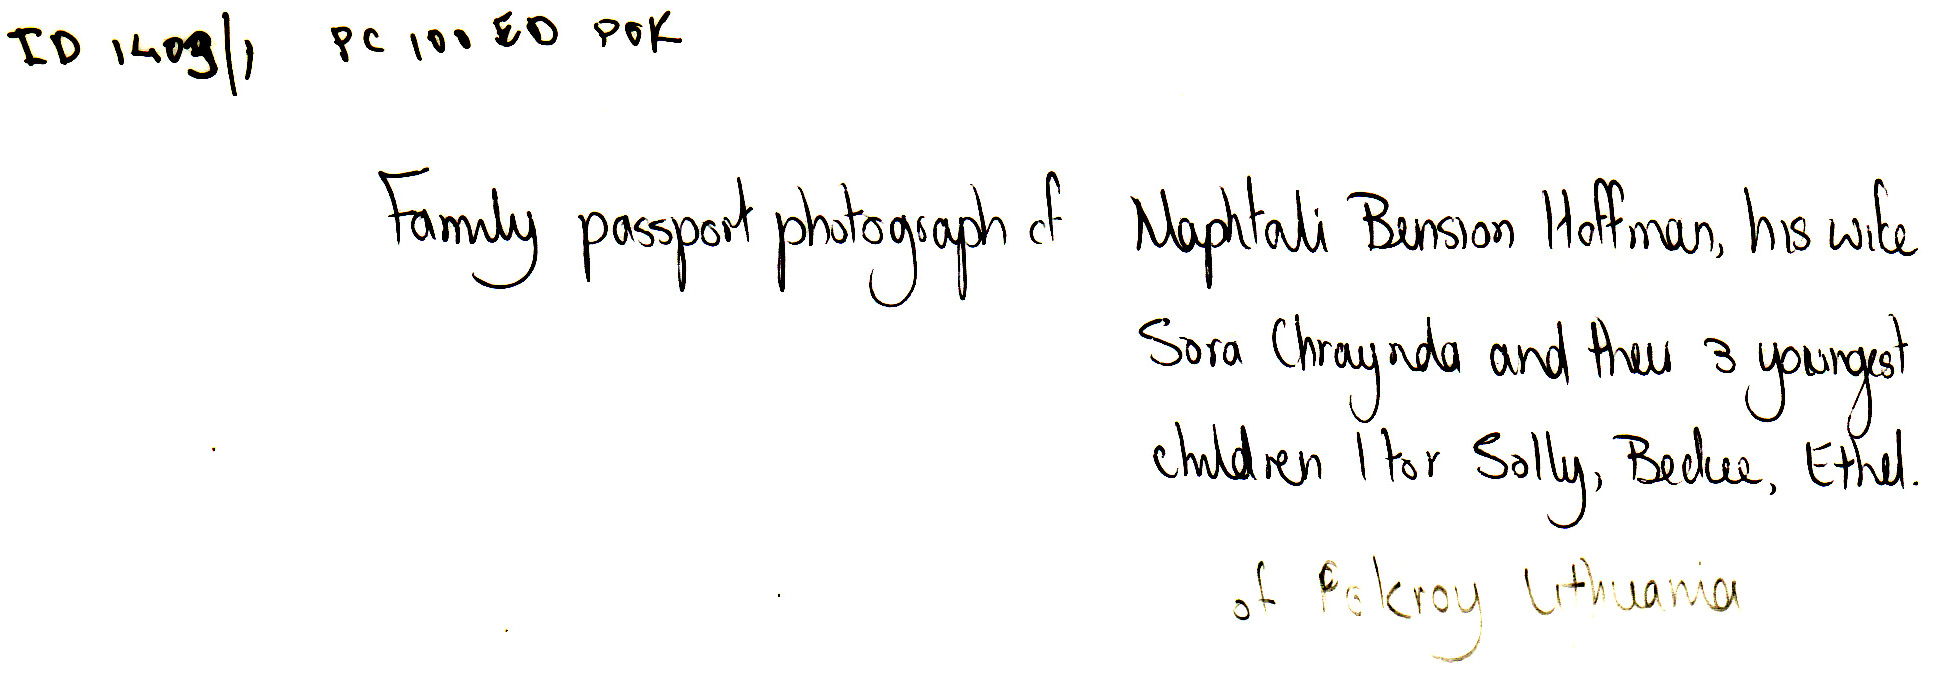 ID 1409/1 PC 100 ED POK
Family passport photograph of Naphtali Bension Hoffman, his wife
Sora Chraynda and their 3 youngest
children l to r Solly, Beckie, Ethel.
of Pokroy Lithuania